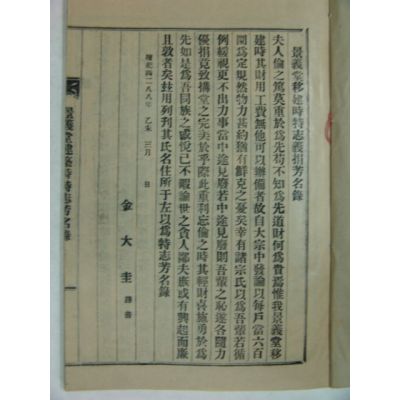 景義堂移建時特志義捐芳名錄
夫人倫之篤莫重於爲先苟不知爲先道財何爲貴焉惟我景義堂移
建時其財用工費無他可以辦備者故自大宗中發論以每戶當六百
圜爲定規然物力甚約猶有鮮克之憂矣幸有諸宗氏以爲吾輩若循
例緩視更不出力事當中途見廢若中途見廢則吾輩之恥遂各隨力
優捐竟致搆堂之完美於乎際此重利忘倫之時其輕財喜施勇於爲
先如是爲吾同族之歡悅已不暇論世之貪人鄙夫庶或有興起而廉
且敦者矣玆用列其氏名住所于左以爲特志芳名錄
檀紀四二八八年 乙未 三月 日
金大圭 謹書
景義堂建築時特志芳名錄